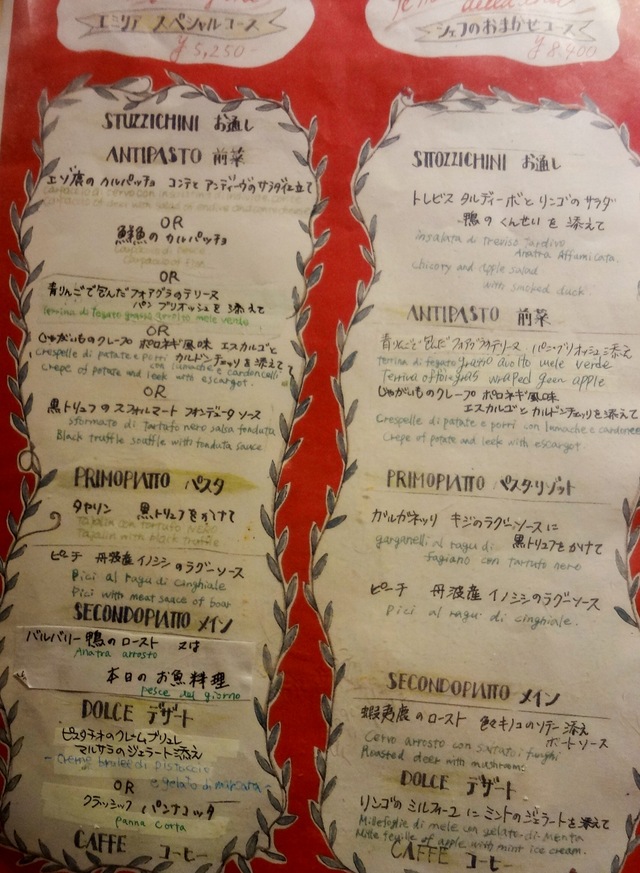 エミリア スペシャルコース
¥5,250-
STUZZICHINI お通し
ANTIPASTO 前菜
エゾ鹿のカルパッチョ コンテとアンディーヴのサラダ仕立て
OR
鮮魚のカルパッチョ
OR
青りんごで包んだフォアグラのテリーヌ
パンブリオッシュを添えて
Terrina di fogato grasso avvolto mele verde
OR
じゃがいものクレープ ポロネギ風味 エスカルゴと
カルドンチェッリを添えて
Crespelle di patate e porri con lumache e cardoncelli
Crepe of potate and leek with escargot.
OR
黒トリュフのスフォルマート フォンデュータソース
sformato di Tartufo nero salsa fonduta
Black truffle souffle with fonduta sauce
PRIMOPIATTO パスタ
タヤリン 黒トリュフをかけて
Tajarin con tartufo nero
Tajarin with black truffle
ピーチ 丹波産イノシシのラグーソース
Pici al ragu di cinghiale
Pici with meat sauce of boar
SECONDOPIATTO メイン
バルバリー鴨のロースト 又は
Anatra arrosto
本日のお魚料理
pesce del giorno
DOLCE デザート
ピスタチオのクレームブリュレ
マルサラのジェラート添え
- Creme brulee di pistaccio
e gelato di marsara -
OR
クラッシック パンナコッタ
panna cotta
CAFFE コーヒー
シェフのおまかせコース
¥8,400
STTOZZICHINI お通し
トレビス タルディーボとリンゴのサラダ
鴨のくんせいを添えて
insalata di treviso tardivo
Anatra Affumicata.
chicory and Apple salad
with smoked duck.
ANTIPASTO 前菜
青りんごで包んだフォアグラのテリーヌ パンブリオッシュ添え
terrina di fogato grasso avolto mele verde
Terrina of foie gras wraped green apple
じゃがいものクレープ ポロネギ風味
エスカルゴとカルドンチェッリを添えて
Crespelle di patate e porri con lumache e cardoncelli
Crepe of potate and leek with escargot.
PRIMOPIATTO パスタ・リゾット
ガルガネッリ キジのラグーソースに
黒トリュフをかけて
garganelli al ragu di
fagiano con tartufo nero
ピーチ 丹波産イノシシのラグーソース
pici al ragu di cinghiale.
SECONDOPIATTO メイン
蝦夷鹿のロースト 色々キノコのソテー添え
ポートソース
Cervo arrosto con saltati funghi
Roasted deer with mushrooms
DOLCE デザート
リンゴのミルフィーユにミントのジェラートを添えて
Millefoglie di mele con gelato di menta
Mille feuille of apple with mint ice cream.
CAFFE コーヒー